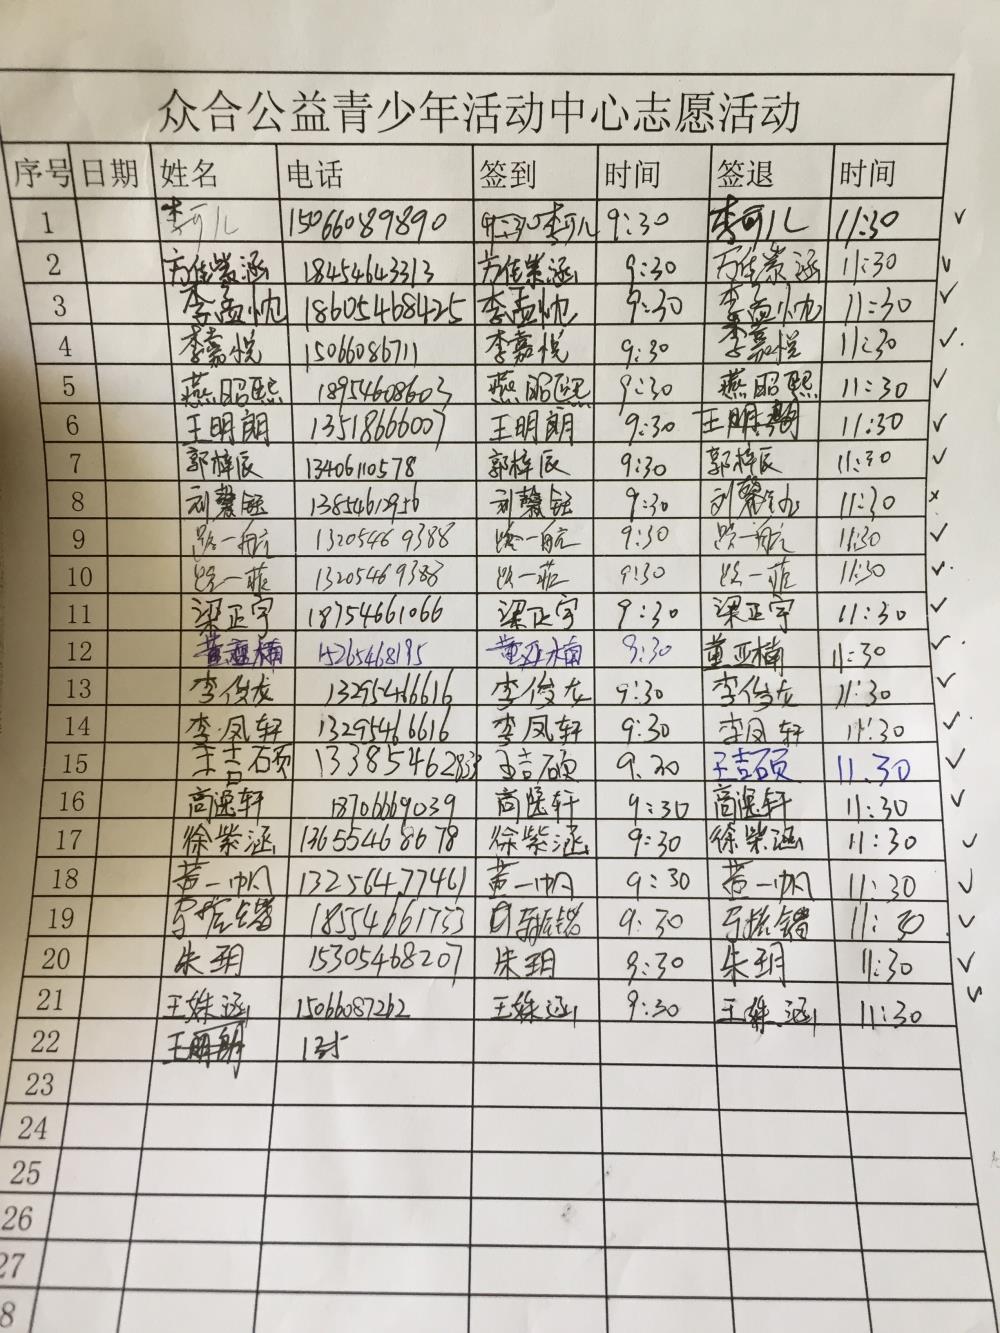 众合公益青少年活动中心志愿活动
序号 日期 姓名 电话 签到 时间 签退 时间
1 李可儿 15066089890 李可儿 9:30 李可儿 11:30
2 方佳萦涵 18454643313 方佳萦涵 9:30 方佳萦涵 11:30
3 李孟帅 18605468425 李孟帅 9:30 李孟帅 11:30
4 李嘉悦 15066086711 李嘉悦 9:30 李嘉悦 11:30
5 燕昭熙 18954608603 燕昭熙 9:30 燕昭熙 11:30
6 王明朗 13518666007 王明朗 9:30 王明朗 11:30
7 郭梓辰 13406110578 郭梓辰 9:30 郭梓辰 11:30
8 13854612956 9:30 11:30
9 路一航 13205469388 路一航 9:30 路一航 11:30
10 路一菲 13205469388 路一菲 9:30 路一菲 11:30
11 梁正宇 18754661066 梁正宇 9:30 梁正宇 11:30
12 董亚楠 15265468195 董亚楠 9:30 董亚楠 11:30
13 李俊龙 13295466616 李俊龙 9:30 李俊龙 11:30
14 李凤轩 13295466616 李凤轩 9:30 李凤轩 11:30
15 王吉硕 13385462838 王吉硕 9.30 王吉硕 11.30
16 高逸轩 18706669039 高逸轩 9:30 高逸轩 11:30
17 徐紫涵 13655468678 徐紫涵 9:30 徐紫涵 11:30
18 黄一帆 13256477461 黄一帆 9:30 黄一帆 11:30
19 18554661753 9:30 11:30
20 朱玥 15305468207 朱玥 9:30 朱玥 11:30
21 王姝涵 15066087262 王姝涵 9:30 王姝涵 11:30
22 王明朗
23
24
25
26
27
8